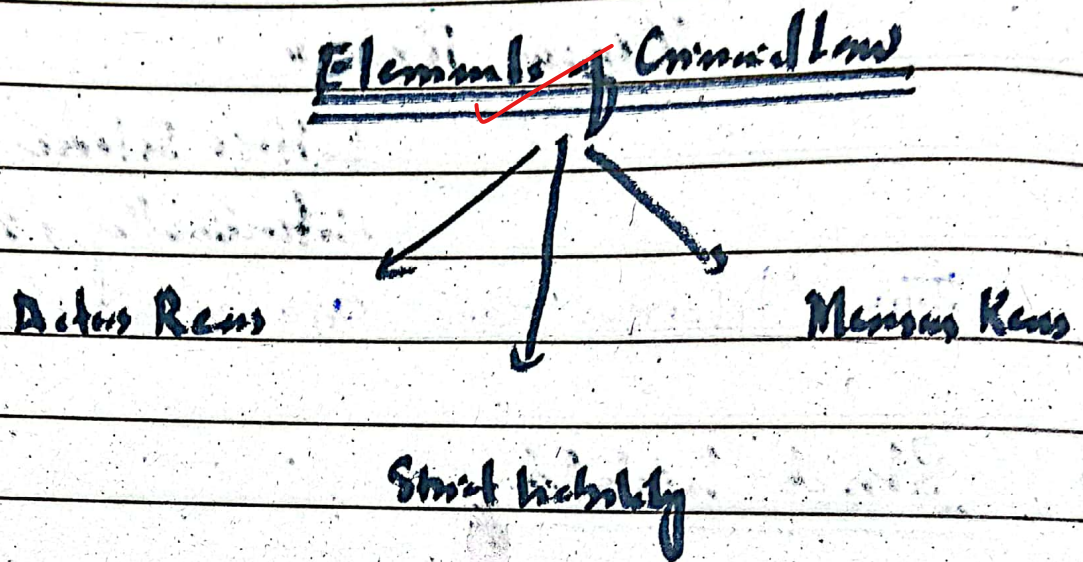 Elements of Criminal Law
Actus Reus
Mensus Reus
Strict liability